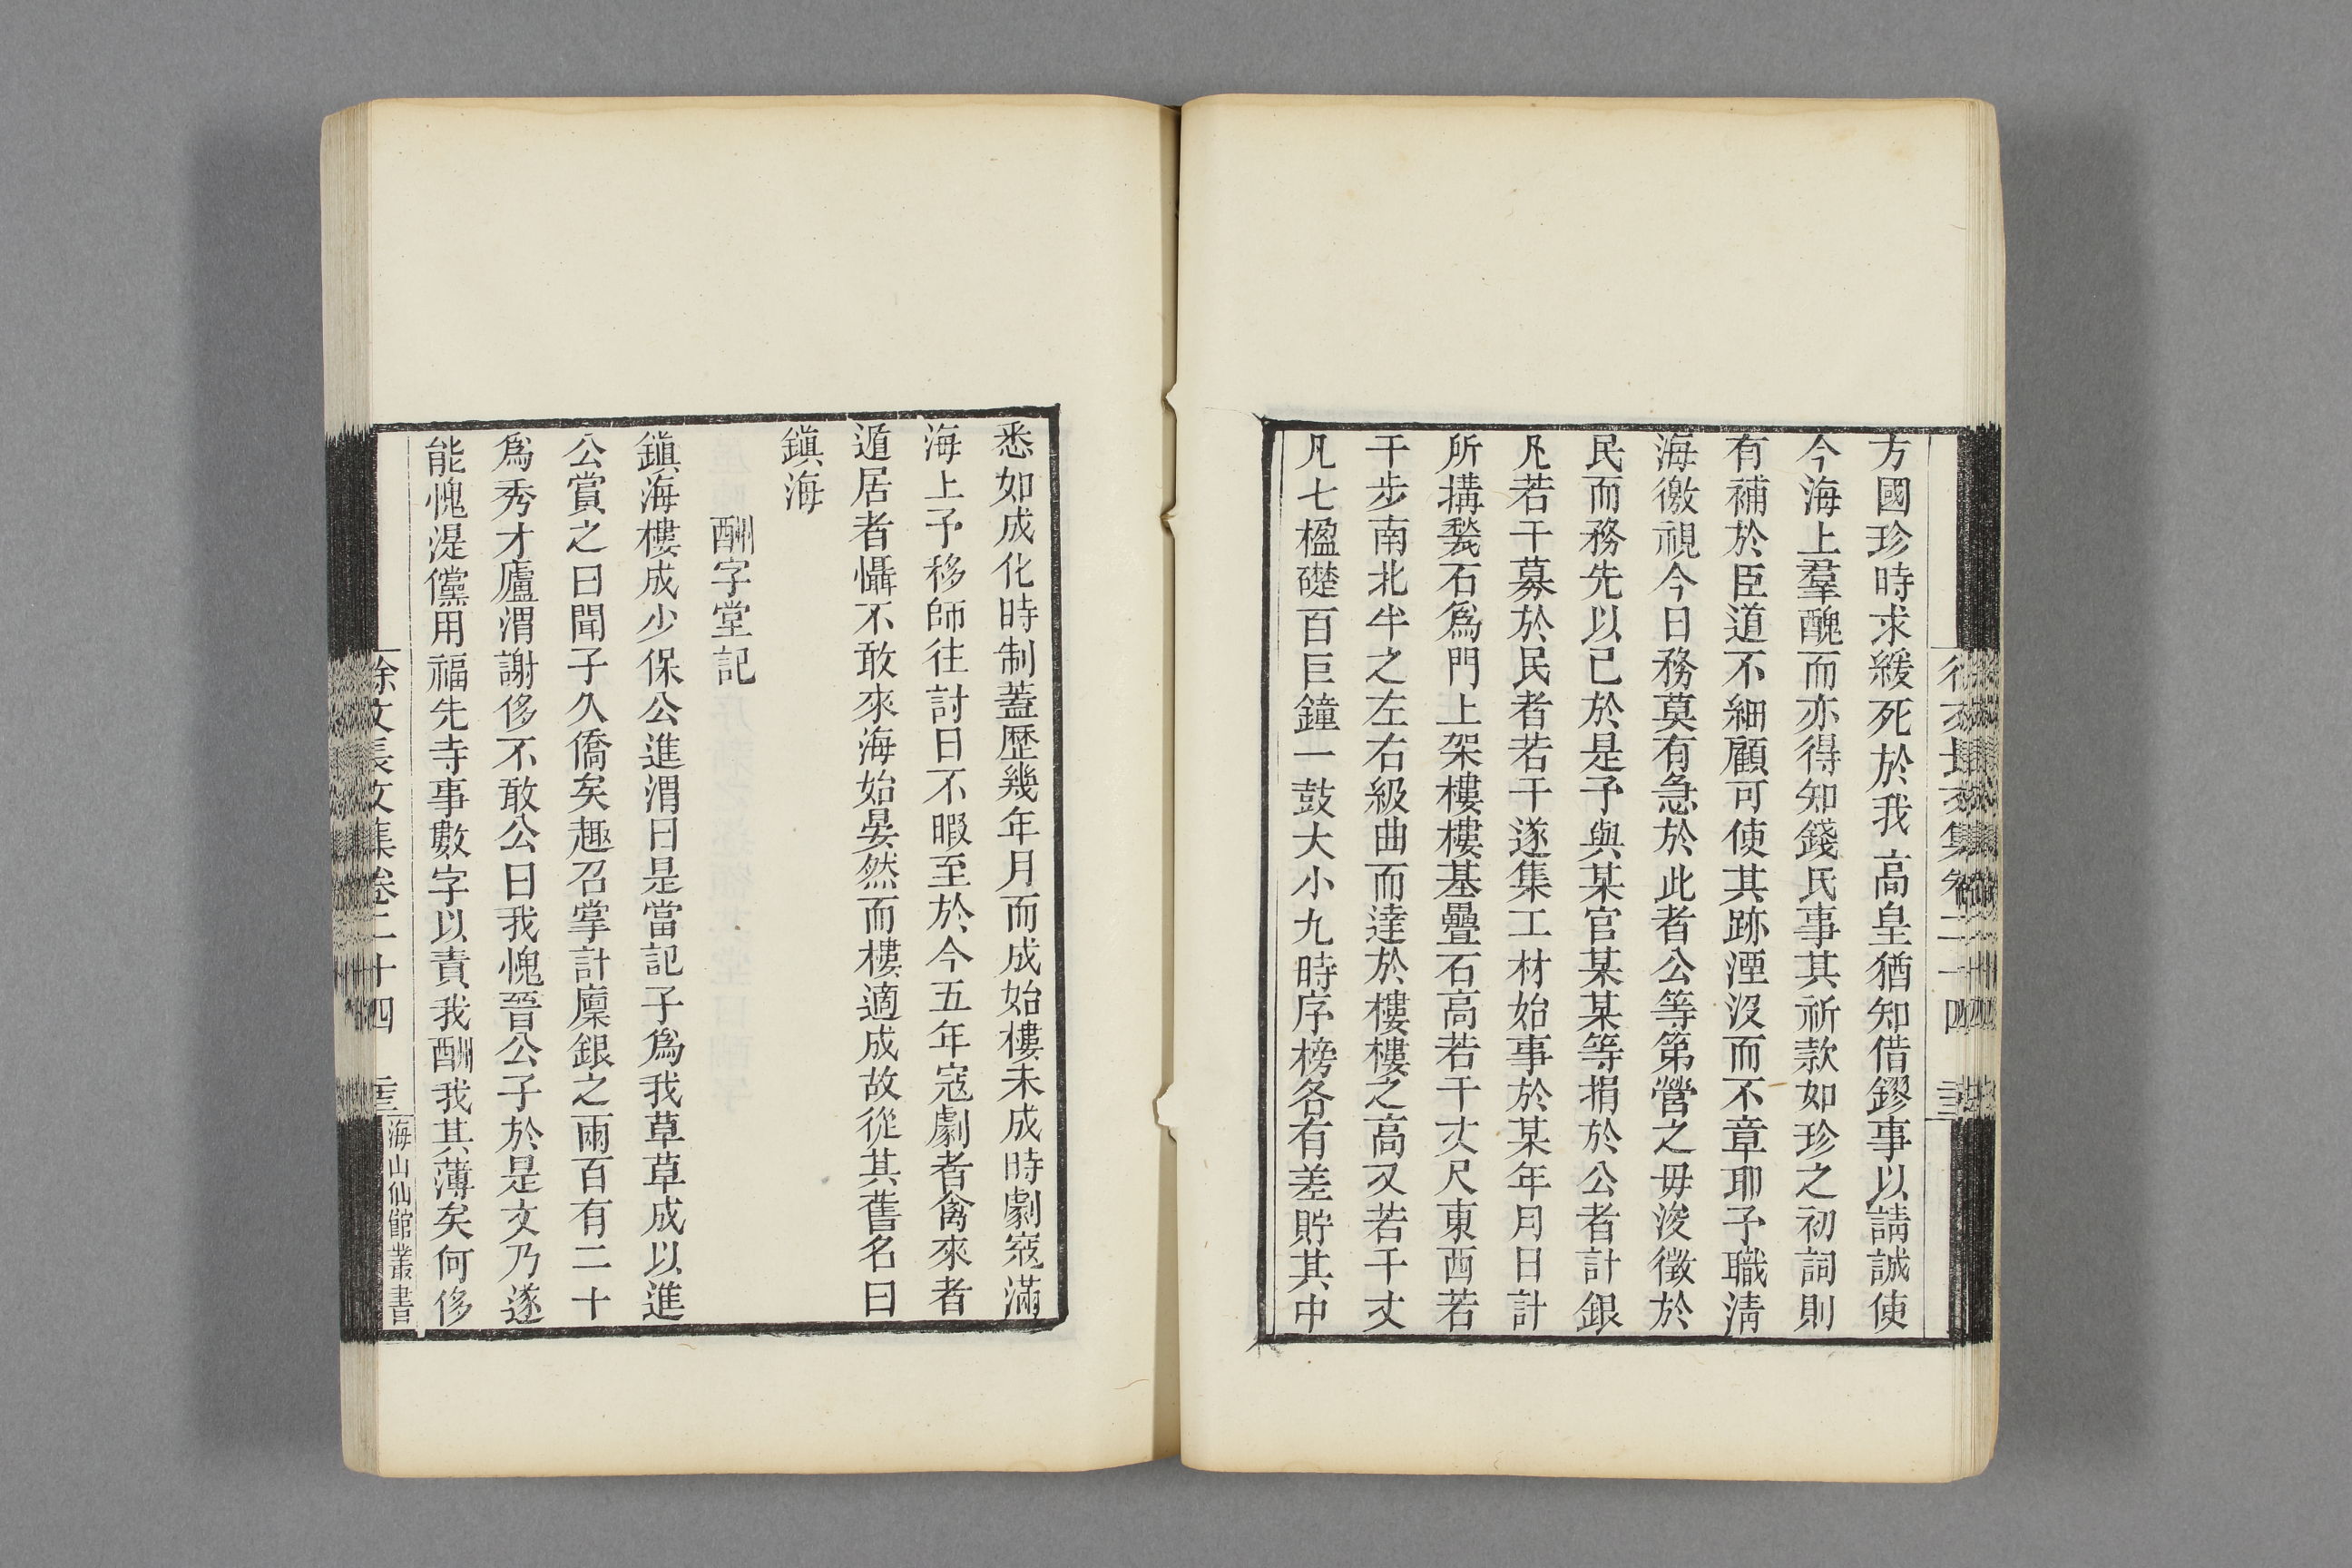 方國珍時求緩死於我 高皇猶知借鏐事以請誠使
今海上羣醜而亦得知錢氏事其祈款如珍之初詞則
有補於臣道不細顧可使其跡湮沒而不章耶予職淸
海徼視今日務莫有急於此者公等第營之毋浚徵於
民而務先以已於是予與某官某某等捐於公者計銀
凡若干募於民者若干遂集工材始事於某年月日計
所搆甃石爲門上架樓樓基疊石高若干丈尺東西若
干步南北半之左右級曲而達於樓樓之高又若干丈
凡七楹礎百巨鐘一鼓大小九時序榜各有差貯其中
悉如成化時制蓋歷幾年月而成始樓未成時劇寇滿
海上予移師往討日不暇至於今五年寇劇者禽來者
遁居者懾不敢來海始晏然而樓適成故從其舊名曰
鎭海
酬字堂記
鎭海樓成少保公進渭曰是當記子爲我草草成以進
公賞之曰聞子久僑矣趣召掌計廩銀之兩百有二十
爲秀才廬渭謝侈不敢公曰我愧晉公子於是文乃遂
能愧湜儻用福先寺事數字以責我酬我其薄矣何侈
徐文長文集卷二十四
海山仙館叢書